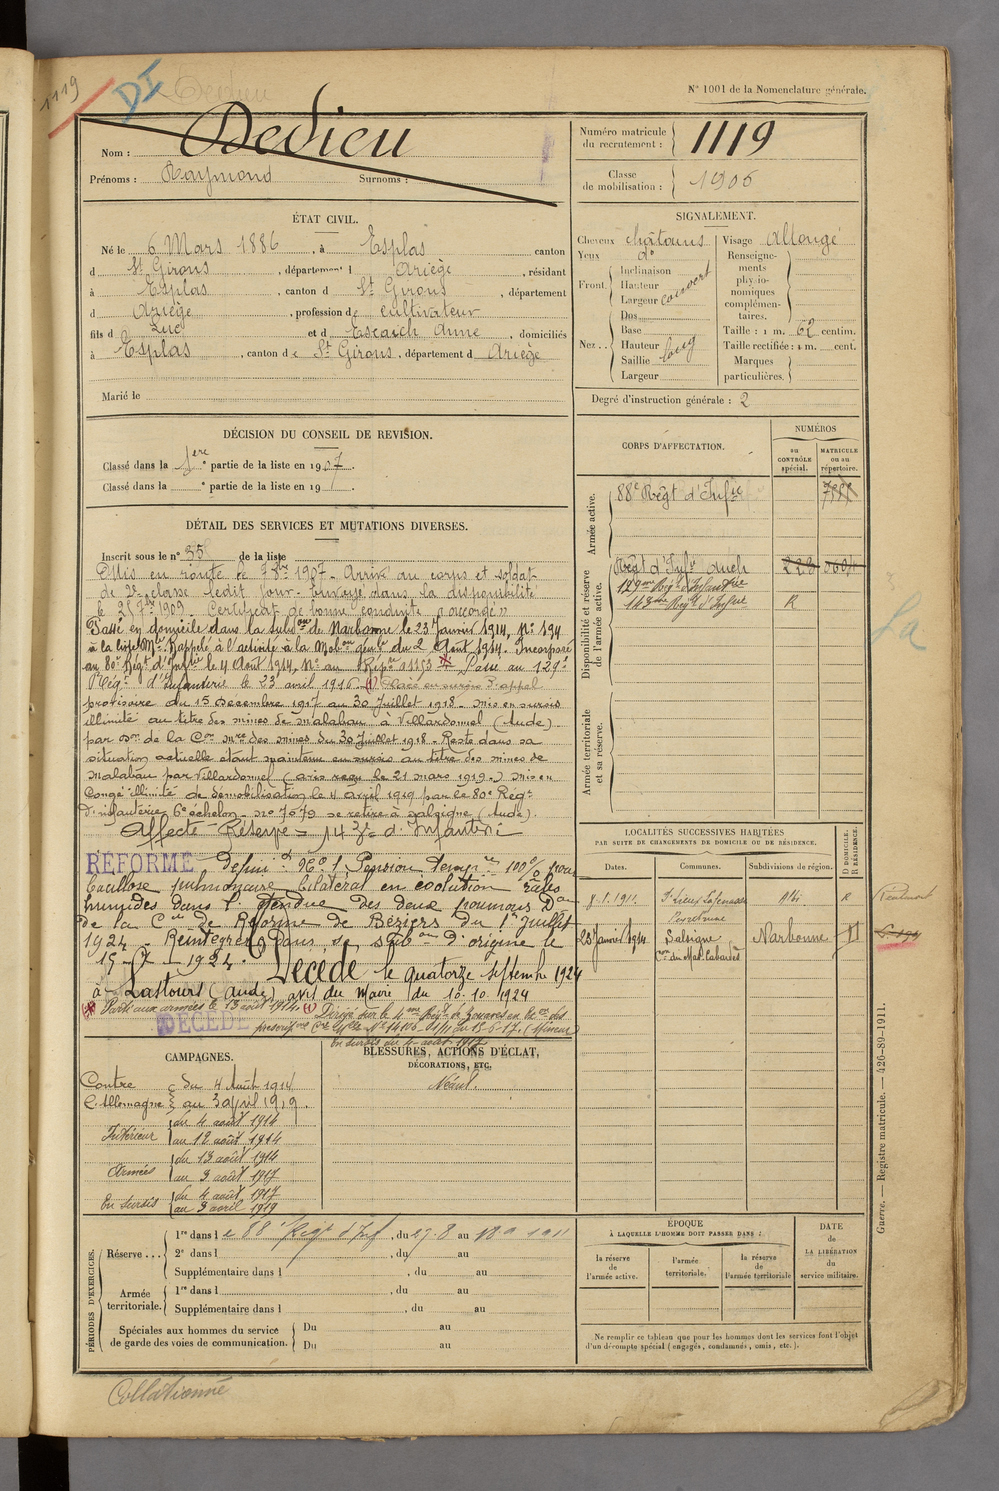 1119
DI
Dedieu
N° 1001 de la Nomenclature générale.
Nom : Dedieu
Prénoms : Raymond Surnoms :
Numéro matricule du recrutement : 1119
Classe de mobilisation : 1906
ÉTAT CIVIL.
Né le 6 Mars 1886, à Esplas canton
d St Girons, département d Ariège, résidant
à Esplas, canton d St Girons, département
d Ariège, profession de cultivateur
fils d Luc et d Escaich Anne, domiciliés
à Esplas, canton de St Girons, département d Ariège
Marié le
SIGNALEMENT.
Cheveux châtains
Yeux do
Front. Inclinaison
Hauteur
Largeur couvert
Nez.. Dos
Base
Hauteur
Saillie long
Largeur
Visage allongé
Renseignements physionomiques complémentaires.
Taille : 1 m. 62 centim.
Taille rectifiée : 1 m. cent.
Marques particulières.
Degré d'instruction générale : 2
DÉCISION DU CONSEIL DE REVISION.
Classé dans la 1ere partie de la liste en 1907.
Classé dans la e partie de la liste en 19 .
CORPS D'AFFECTATION.
NUMÉROS
au CONTRÔLE spécial.
MATRICULE ou au répertoire.
Armée active.
88e Régt d'Infie
Disponibilité et réserve de l'armée active.
Régt d'Infie Auch 223
129me Régt d'Infanterie
143me Régt d'Infrie R
Armée territoriale et sa réserve.
DÉTAIL DES SERVICES ET MUTATIONS DIVERSES.
Inscrit sous le n° 35 de la liste
Mis en route le 7 8bre 1907. Arrivé au corps et soldat
de 2e classe ledit jour. Envoyé dans la disponibilité
le 25 7bre 1909. Certificat de bonne conduite "accordé"
Passé en domicile dans la subdon de Narbonne le 23 Janvier 1914, N° 194
à la liste Mle. Rappelé à l'activité à la Mobon génle du 2 Août 1914. Incorporé
au 80e Régt d'Infie le 4 Août 1914, N° au Répre 01353 Passé au 129e
Régt d'Infanterie le 23 avril 1916 (1) Placé en sursis d'appel
provisoire du 15 Decembre 1917 au 30 Juillet 1918. Mis en sursis
illimité au titre des mines de Malabau à Villardonnel (Aude)
par Don de la Con Mre des mines du 30 Juillet 1918. Reste dans sa
situation actuelle étant maintenu en sursis au titre des mines de
Malabau par Villardonnel (avis reçu le 21 mars 1919.) Mis en
Congé illimité de démobilisation le 4 avril 1919 par le 80e Régt
d'infanterie 6e échelon. N° 7079 se retire à Salsigne (Aude).
Affecté Réserve = 143e d'Infanterie
RÉFORMÉ défini if N° 1 Pension tempre 100% pour
bacillose pulmonaire bilatéral en évolution râles
humides dans l'étendue des deux poumons Don
de la Con de Réforme de Béziers du 1er Juillet
1924 - Réintégré dans sa subon d'origine le
Décédé le quatorze septembre 1924
à Lastours (Aude) avis du Maire du 10.10.1924
Parti aux armées le 13 août 1914. (1) Dirigé sur le 4me Régt de Zouaves en
DÉCÉDÉ
En sursis du 4 août 1917
LOCALITÉS SUCCESSIVES HABITÉES
PAR SUITE DE CHANGEMENTS DE DOMICILE OU DE RÉSIDENCE.
Dates. Communes. Subdivisions de région. D DOMICILE. R RÉSIDENCE.
8.1.1911. St Lieux Lafenasse Albi R
23 Janvier 1914 Salsigne Narbonne D
Con du Mas Cabardès
Réalmont
CAMPAGNES.
Contre l'Allemagne du 4 Août 1914
au 3 avril 1919.
Intérieur du 4 août 1914
au 12 août 1914
Armées du 13 août 1914
au 3 août 1917
En sursis du 4 août 1917
au 3 avril 1919
BLESSURES, ACTIONS D'ÉCLAT, DÉCORATIONS, ETC.
Néant.
PÉRIODES D'EXERCICES.
Réserve... 1re dans l e 88e Régt d'Inf, du 27.8 au 1911
2e dans l , du au
Supplémentaire dans l , du au
Armée territoriale. 1re dans l , du au
Supplémentaire dans l , du au
Spéciales aux hommes du service de garde des voies de communication. Du au
Du au
ÉPOQUE
À LAQUELLE L'HOMME DOIT PASSER DANS :
la réserve de l'armée active.
l'armée territoriale.
la réserve de l'armée territoriale
DATE de LA LIBÉRATION du service militaire.
Ne remplir ce tableau que pour les hommes dont les services font l'objet
d'un décompte spécial (engagés, condamnés, omis, etc.).
Guerre. — Registre matricule. — 426-89-1911.
Collationné